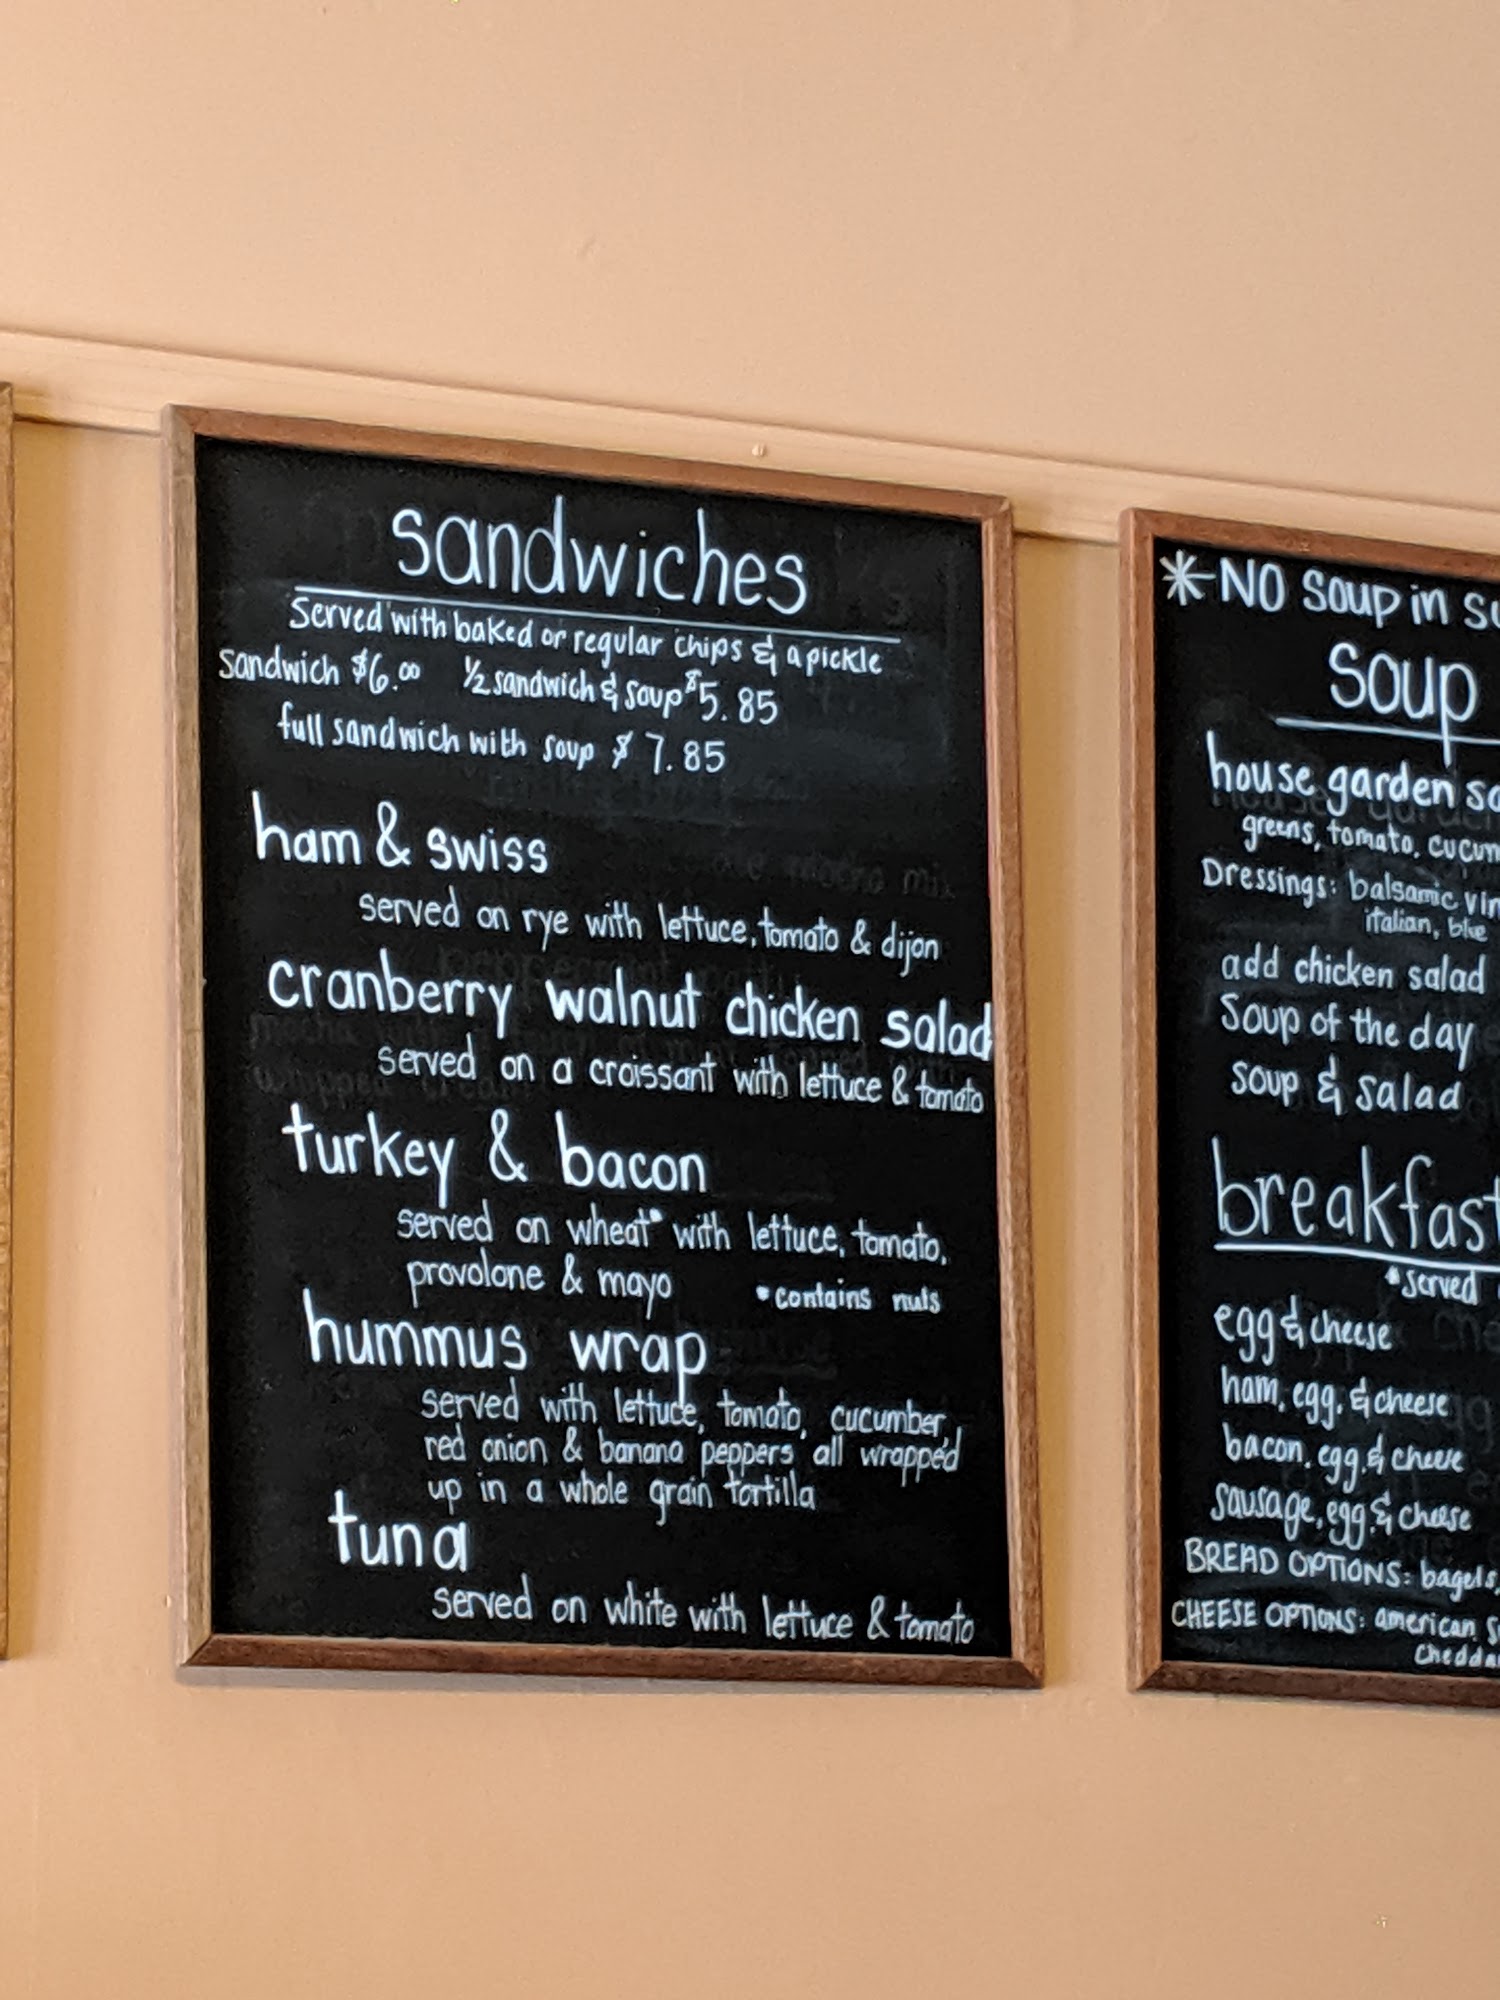 sandwiches
Served with baked or regular chips & a pickle
Sandwich $6.00 1/2 sandwich & soup $5.85
full sandwich with soup $7.85
ham & swiss
served on rye with lettuce, tomato & dijon
cranberry walnut chicken salad
served on a croissant with lettuce & tomato
turkey & bacon
served on wheat* with lettuce, tomato,
provolone & mayo *contains nuts
hummus wrap
served with lettuce, tomato, cucumber,
red onion & banana peppers all wrapped
up in a whole grain tortilla
tuna
served on white with lettuce & tomato
*NO Soup in
Soup
house garden
greens, tomato,
Dressings: balsamic
italian, blue
add chicken salad
Soup of the day
Soup & Salad
breakfast
*served
egg & cheese
ham, egg, & cheese
bacon, egg, & cheese
sausage, egg, & cheese
BREAD OPTIONS: bagels,
CHEESE OPTIONS: american,